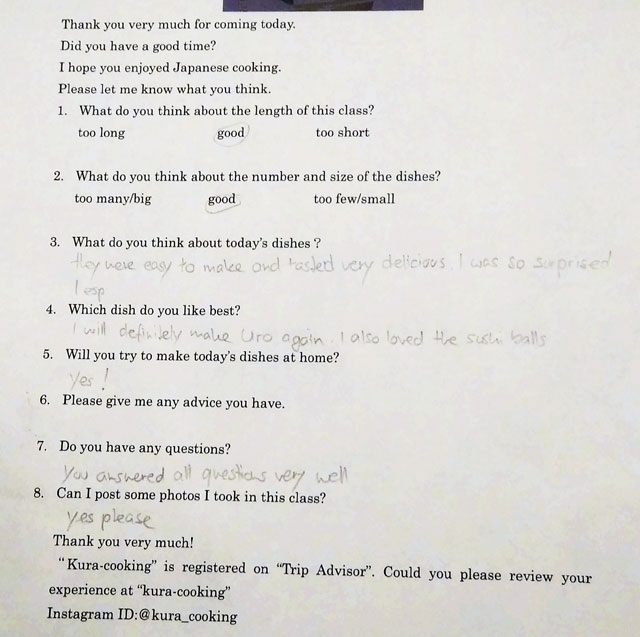 Thank you very much for coming today.
Did you have a good time?
I hope you enjoyed Japanese cooking.
Please let me know what you think.
1. What do you think about the length of this class?
too long good too short
2. What do you think about the number and size of the dishes?
too many/big good too few/small
3. What do you think about today's dishes ?
they were easy to make and tasted very delicious. I was so surprised
I esp
4. Which dish do you like best?
I will definitely make Uro again. I also loved the sushi balls
5. Will you try to make today's dishes at home?
Yes !
6. Please give me any advice you have.
7. Do you have any questions?
You answered all questions very well
8. Can I post some photos I took in this class?
yes please
Thank you very much!
"Kura-cooking" is registered on "Trip Advisor". Could you please review your
experience at "kura-cooking"
Instagram ID:@kura_cooking